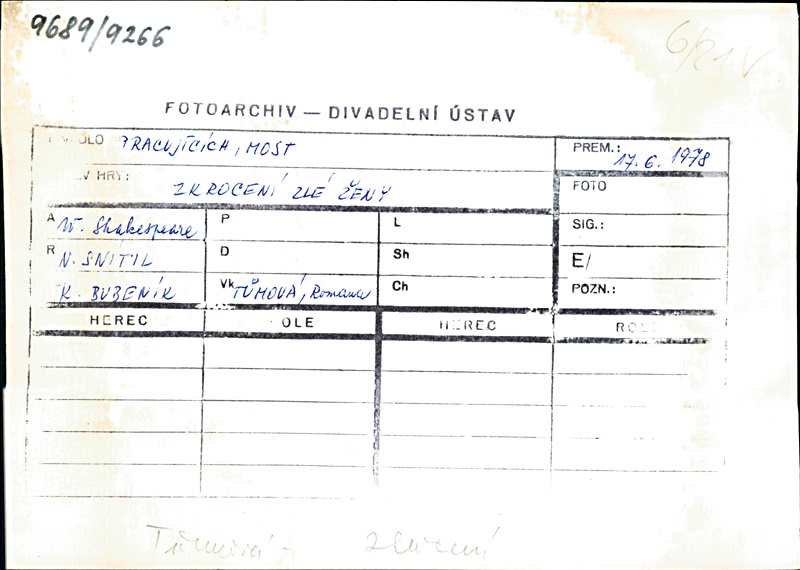 9689/9266
6/21 V
FOTOARCHIV — DIVADELNÍ ÚSTAV
DLO PRACUJÍCÍCH, MOST
PREM.: 17.6.1978
V HRY: ZKROCENÍ ZLÉ ŽENY
FOTO
A W. Shakespeare P L
SIG.:
R N. SNÍTIL D Sh
E/
K. BUBENÍK Vk TŮMOVÁ, Romana Ch
POZN.:
HEREC OLE HEREC ROL
Tůmová - zkrocení